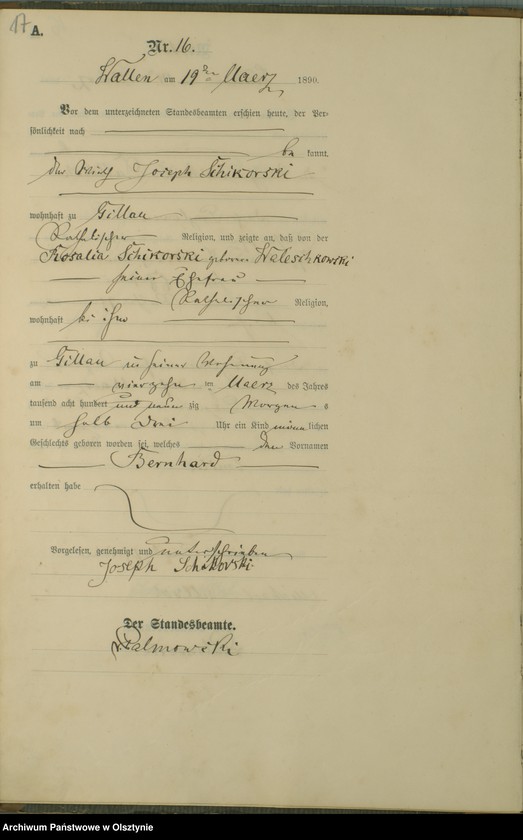 17 A.
Nr. 16.
Wallen am 19ten Maerz 1890.
Vor dem unterzeichneten Standesbeamten erschien heute, der Per-
sönlichkeit nach
be kannt,
der Wirth Joseph Schikorski
wohnhaft zu Gillau
Katholischer Religion, und zeigte an, daß von der
Rosalia Schikorski geborene Waleschkowski
seiner Ehefrau
Katholischer Religion,
wohnhaft bei ihm
zu Gillau in seiner Wohnung
am vierzehn ten Maerz des Jahres
tausend acht hundert und neun zig Morgen s
um halb drei Uhr ein Kind männ lichen
Geschlechts geboren worden sei, welches den Vornamen
Bernhard
erhalten habe
Vorgelesen, genehmigt und unterschrieben
Joseph Schikorski
Der Standesbeamte.
Palmowski
Archiwum Państwowe w Olsztynie